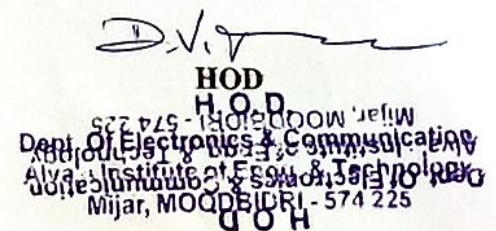 D.V.
HOD
H.O.D.
Dept. Of Electronics & Communication
Alva's Institute of Engg. & Technology
Mijar, MOODBIDRI - 574 225